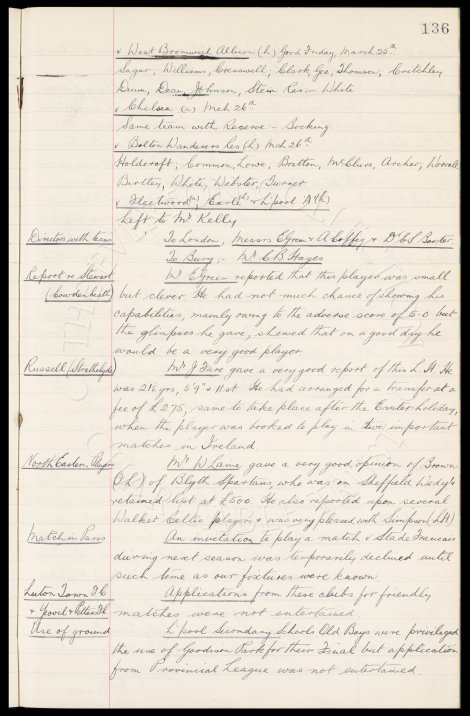 136
v West Bromwich Albion (h) Good Friday March 25th
Sagar, Williams, Cresswell, Clark, Gee, Thomson, Critchley
Dunn, Dean, Johnson, Stein Res:- White
v Chelsea (a) Mch 26th
Same team with Reserve:- Bocking.
v Bolton Wanderers Res (h) Mch 26th
Holdcroft, Common, Lowe, Britton, McClure, Archer, Worrall
Birtley, White, Webster, Turner
v Fleetwood(h), Earle(h) & L'pool 'A'(h)
Left to Mr Kelly
Directors with team To London, Messrs E Green & A Coffey, & Dr C S Baxter.
To Bury:- Mr C B Hayes
Report re Stewart Mr E Green reported that this player was small
(Cowdenbeath) but clever. He had not much chance of showing his
capabilities, mainly owing to the adverse score of 5-0 but
the glimpses he gave, shewed that on a good day he
would be a very good player
Russell (Strathclyde) Mr J Fare gave a very good report of this L H. He
was 21½ yrs, 5'9" & 11 st. He had arranged for a transfer at a
fee of £275, same to take place after the Easter holiday,
when the player was booked to play in two important
matches in Ireland.
North Eastern Players Mr W Lawe gave a very good opinion of Brown
of Blyth Spartans, who was on Sheffield Wedy's
retained list at £500. He also reported upon several
Walker Celtic players & was very pleased with Simpson (LH)
Match in Paris An invitation to play a match v Stade Francais
during next season was temporarily declined until
such time as our fixtures were known.
Luton Town F C Applications from these clubs for friendly
& Yeovil & Petters F C matches were not entertained.
Use of ground L'pool Secondary Schools Old Boys were privileged
the use of Goodison Park for their Final but application
from Provincial League was not entertained.